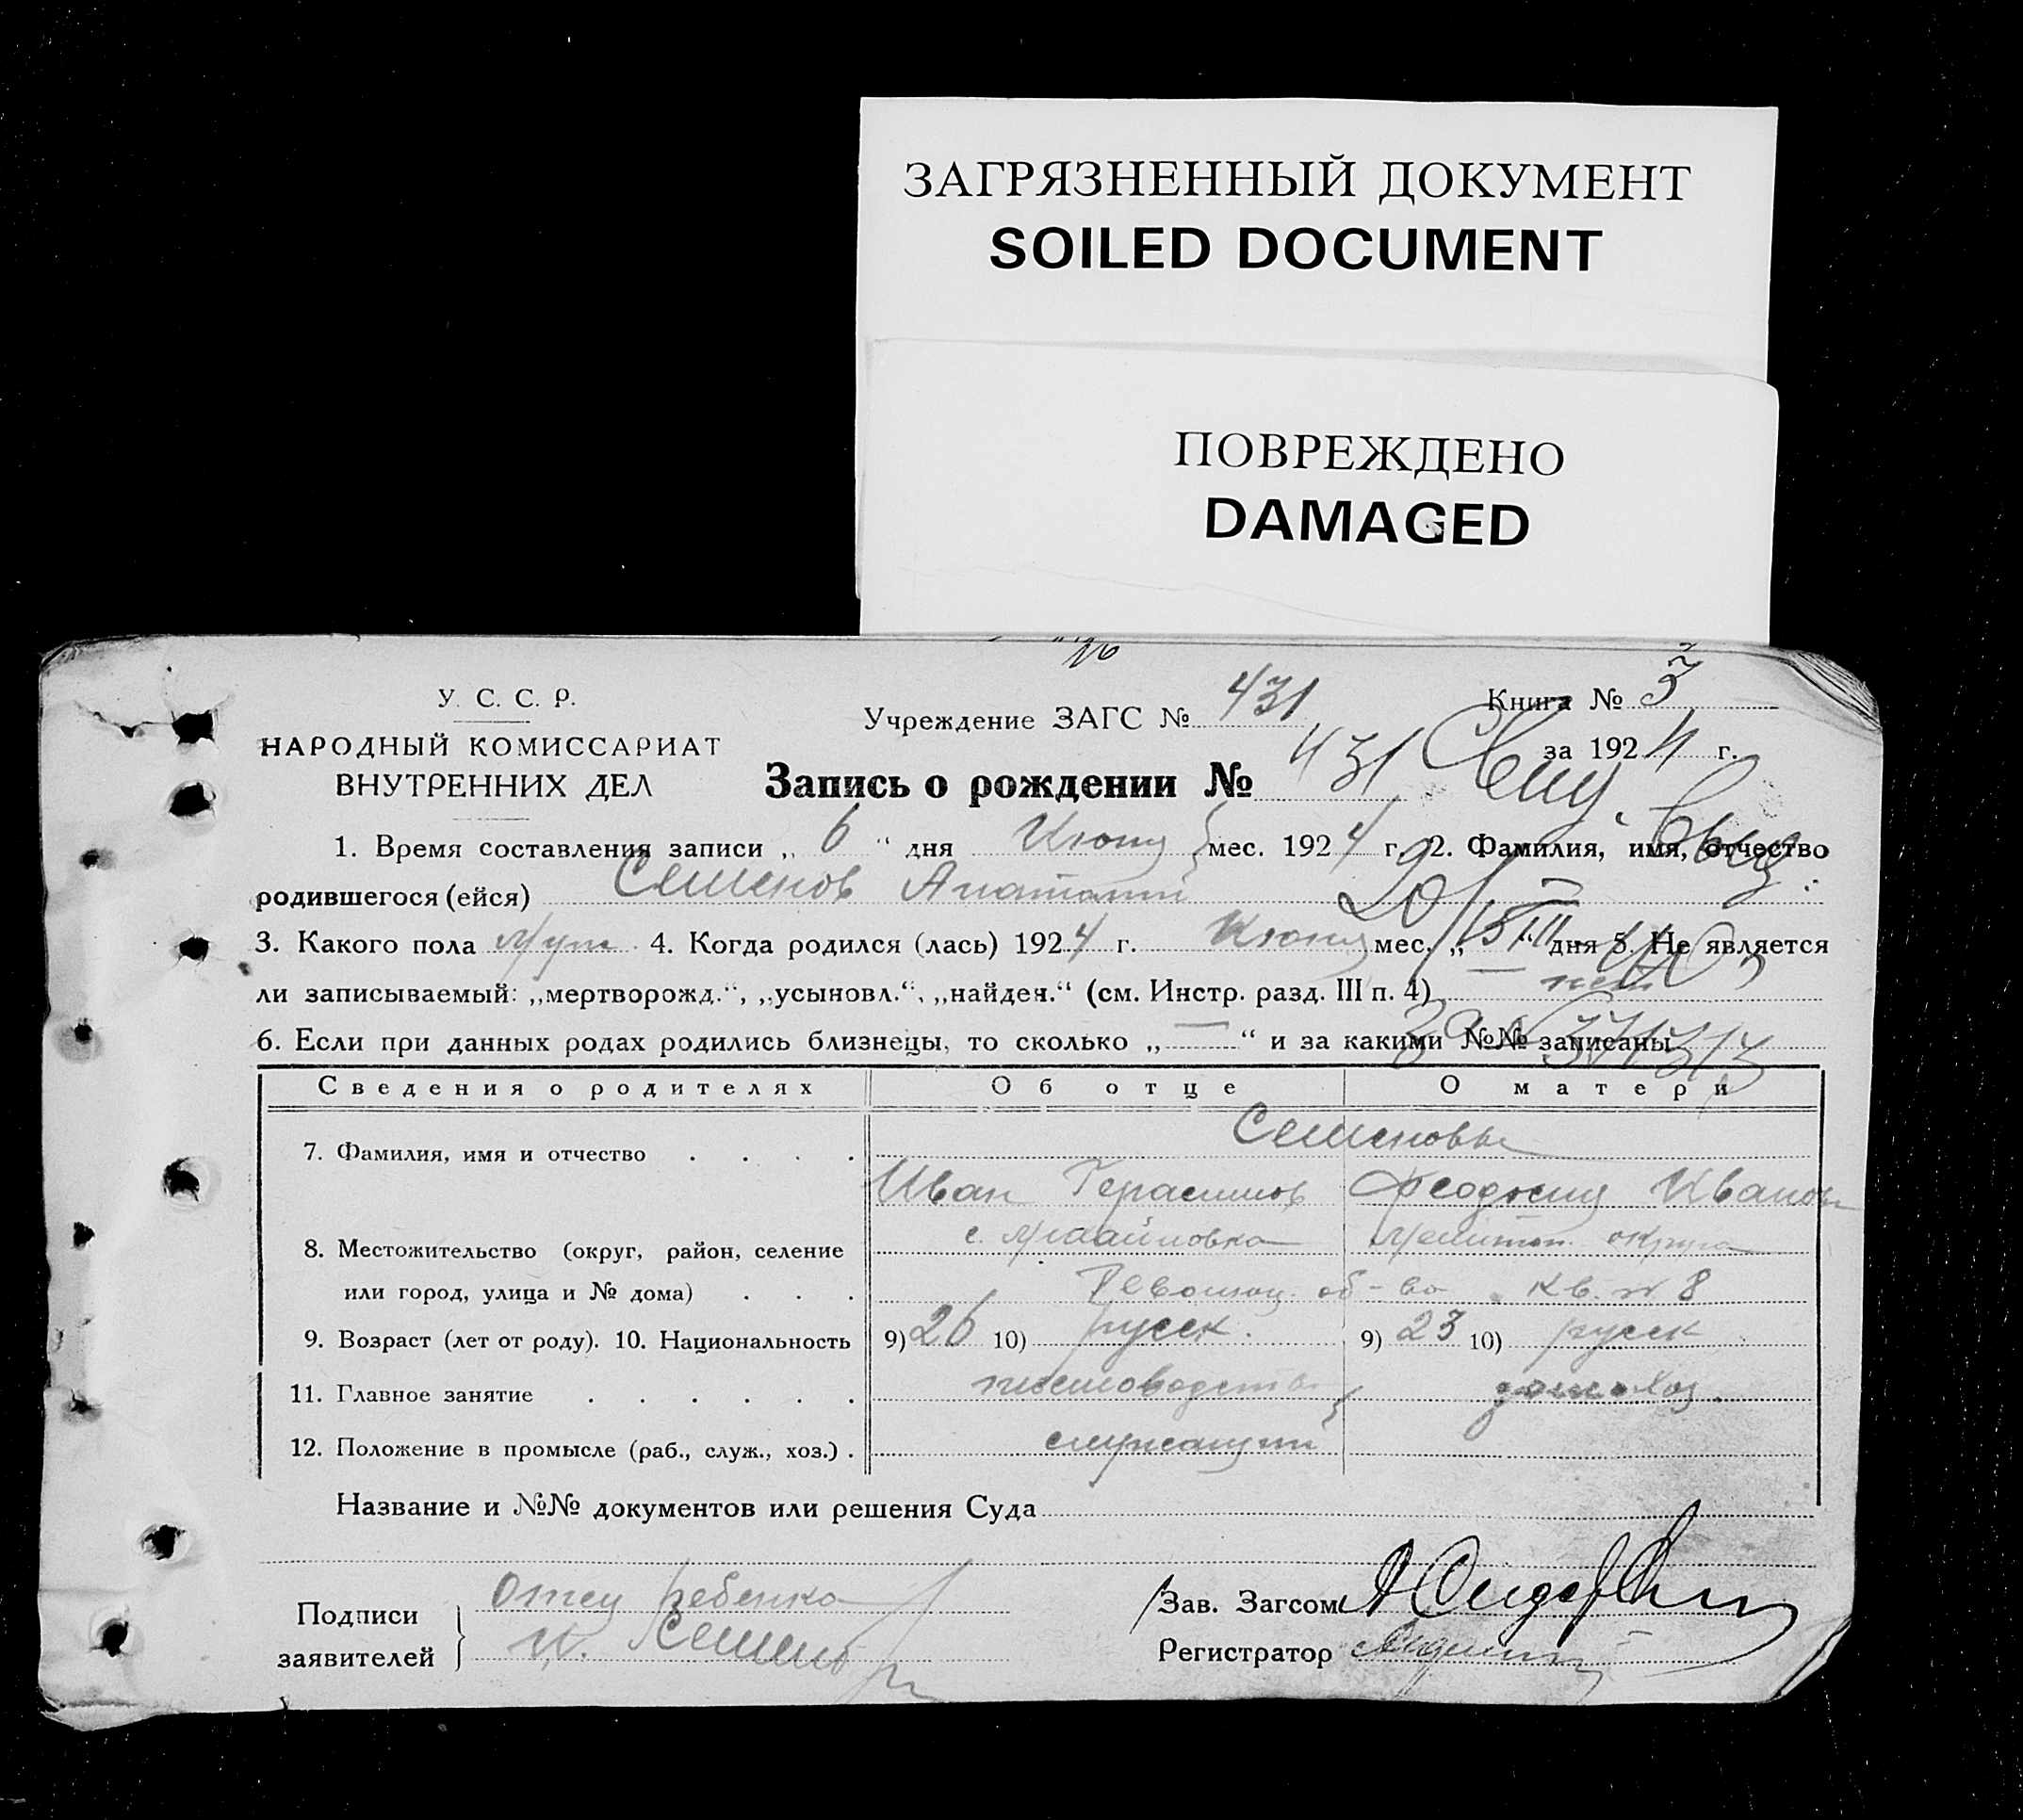 ЗАГРЯЗНЕННЫЙ ДОКУМЕНТ
SOILED DOCUMENT
ПОВРЕЖДЕНО
DAMAGED
У. С. С. Р.
НАРОДНЫЙ КОМИССАРИАТ
ВНУТРЕННИХ ДЕЛ
Учреждение ЗАГС № 431
Книга № 3
за 1924 г.
Запись о рождении № 431
1. Время составления записи „ 6 “ дня Июня мес. 1924 г. 2. Фамилия, имя, отчество
родившегося (ейся) Семенов Анатолий
3. Какого пола муж 4. Когда родился (лась) 1924 г. Июня мес. „ “ дня 5. Не является
ли записываемый: „мертворожд.“, „усыновл.“, „найден.“ (см. Инстр. разд. III п. 4) нет
6. Если при данных родах родились близнецы, то сколько „ — “ и за какими №№ записаны
Сведения о родителях Об отце О матери
7. Фамилия, имя и отчество . . . . Семеновы
Иван Герасимов Феодосия Иванов
8. Местожительство (округ, район, селение с. округа
или город, улица и № дома) . . . об-во кв. № 8
9. Возраст (лет от роду). 10. Национальность 9) 26 10) русск. 9) 23 10) русск
11. Главное занятие . . . . . . домохоз.
12. Положение в промысле (раб., служ., хоз.) . служащий
Название и №№ документов или решения Суда
Подписи заявителей
Отец ребенка
И. Семенов
Зав. Загсом
Регистратор